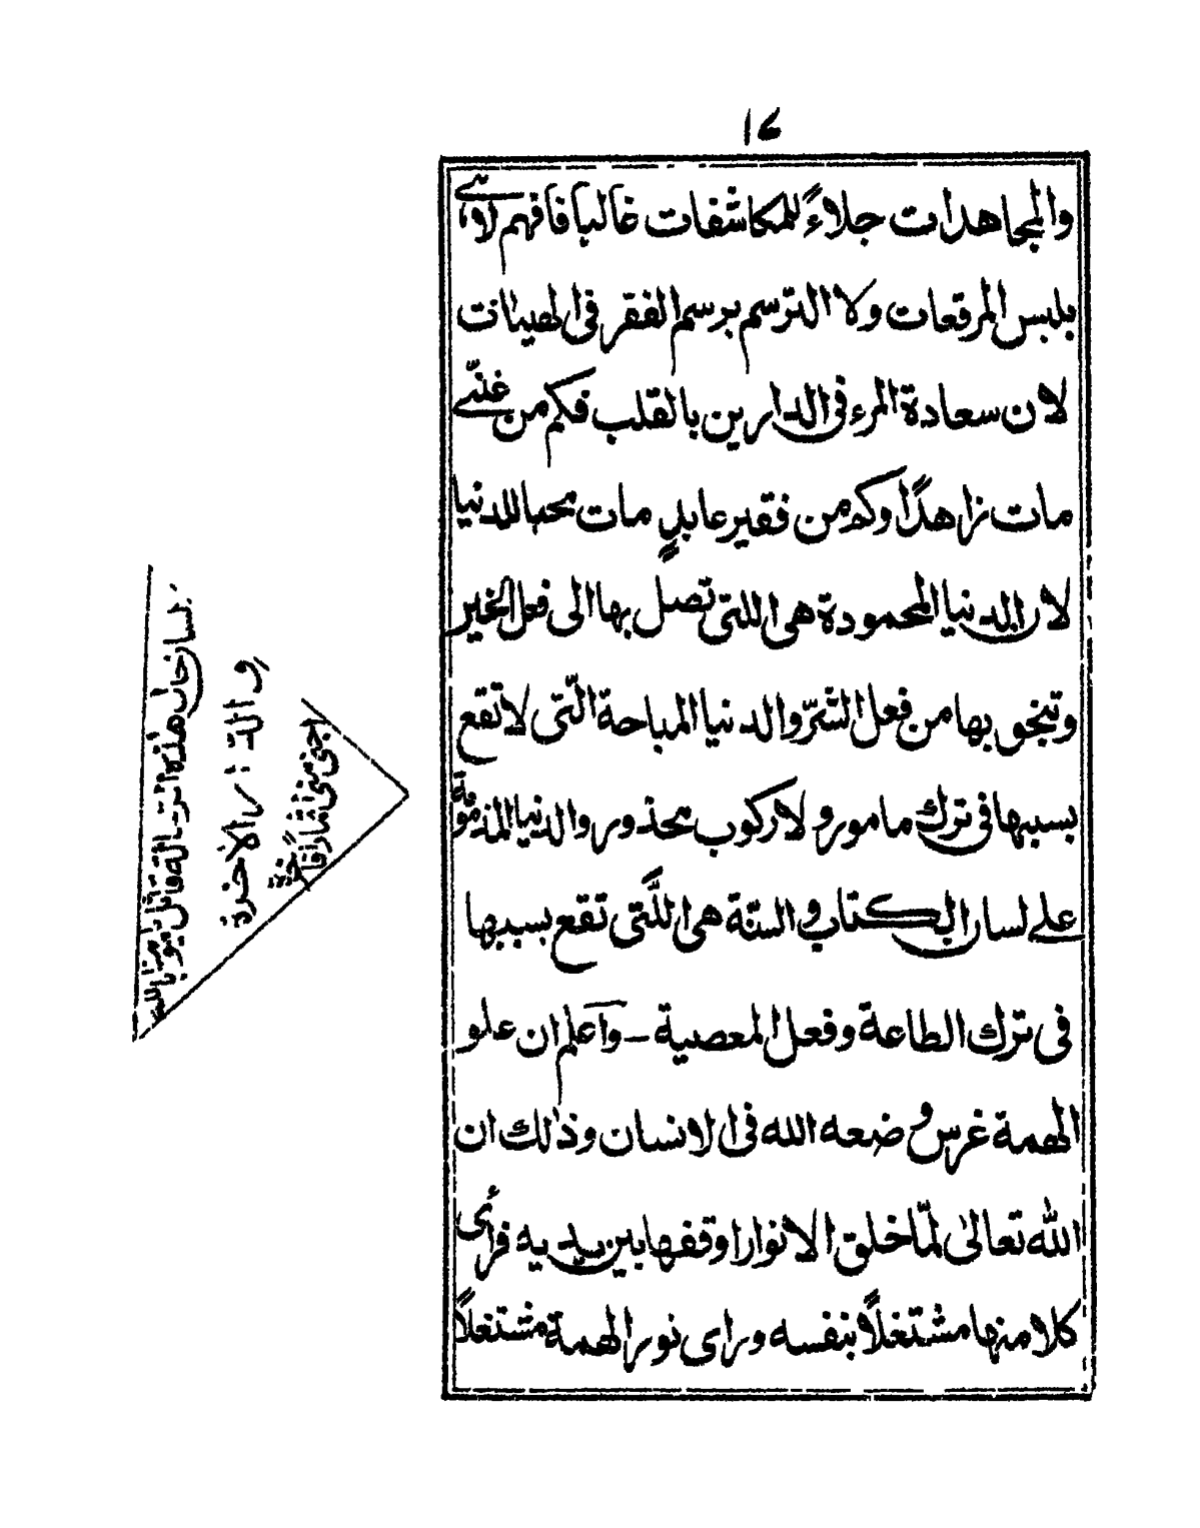 ١٤
والمجاهدات جلاءً للمكاشفات غالبا فافهم لا
بلبس المرقعات ولا الترسم برسم الفقر فى الهيئات
لان سعادة المرء فى الدارين بالقلب فكم من غنىّ
مات زاهدًا وكم من فقير عابدٍ مات محبا للدنيا
لان الدنيا المحمودة هى اللتى تصل بها الى فعل الخير
وتنجو بها من فعل الشرّ والدنيا المباحة الّتى لا تقع
بسببها فى ترك مامور ولا ركوب محذور والدنيا المذمومة
على لسان الكتاب والسنّة هى اللَّتى تقع بسببها
فى ترك الطاعة وفعل المعصية ـ واعلم ان علو
الهمة غرس وضعه الله فى الانسان وذلك ان
اللّٰه تعالىٰ لمّا خلق الانوار اوقفها بين يديه فرأى
كلا منها مشتغلًا بنفسه وراى نور الهمة مشتغلًا
بلسان حال هذه
والدار الاخرة
اجنى منى